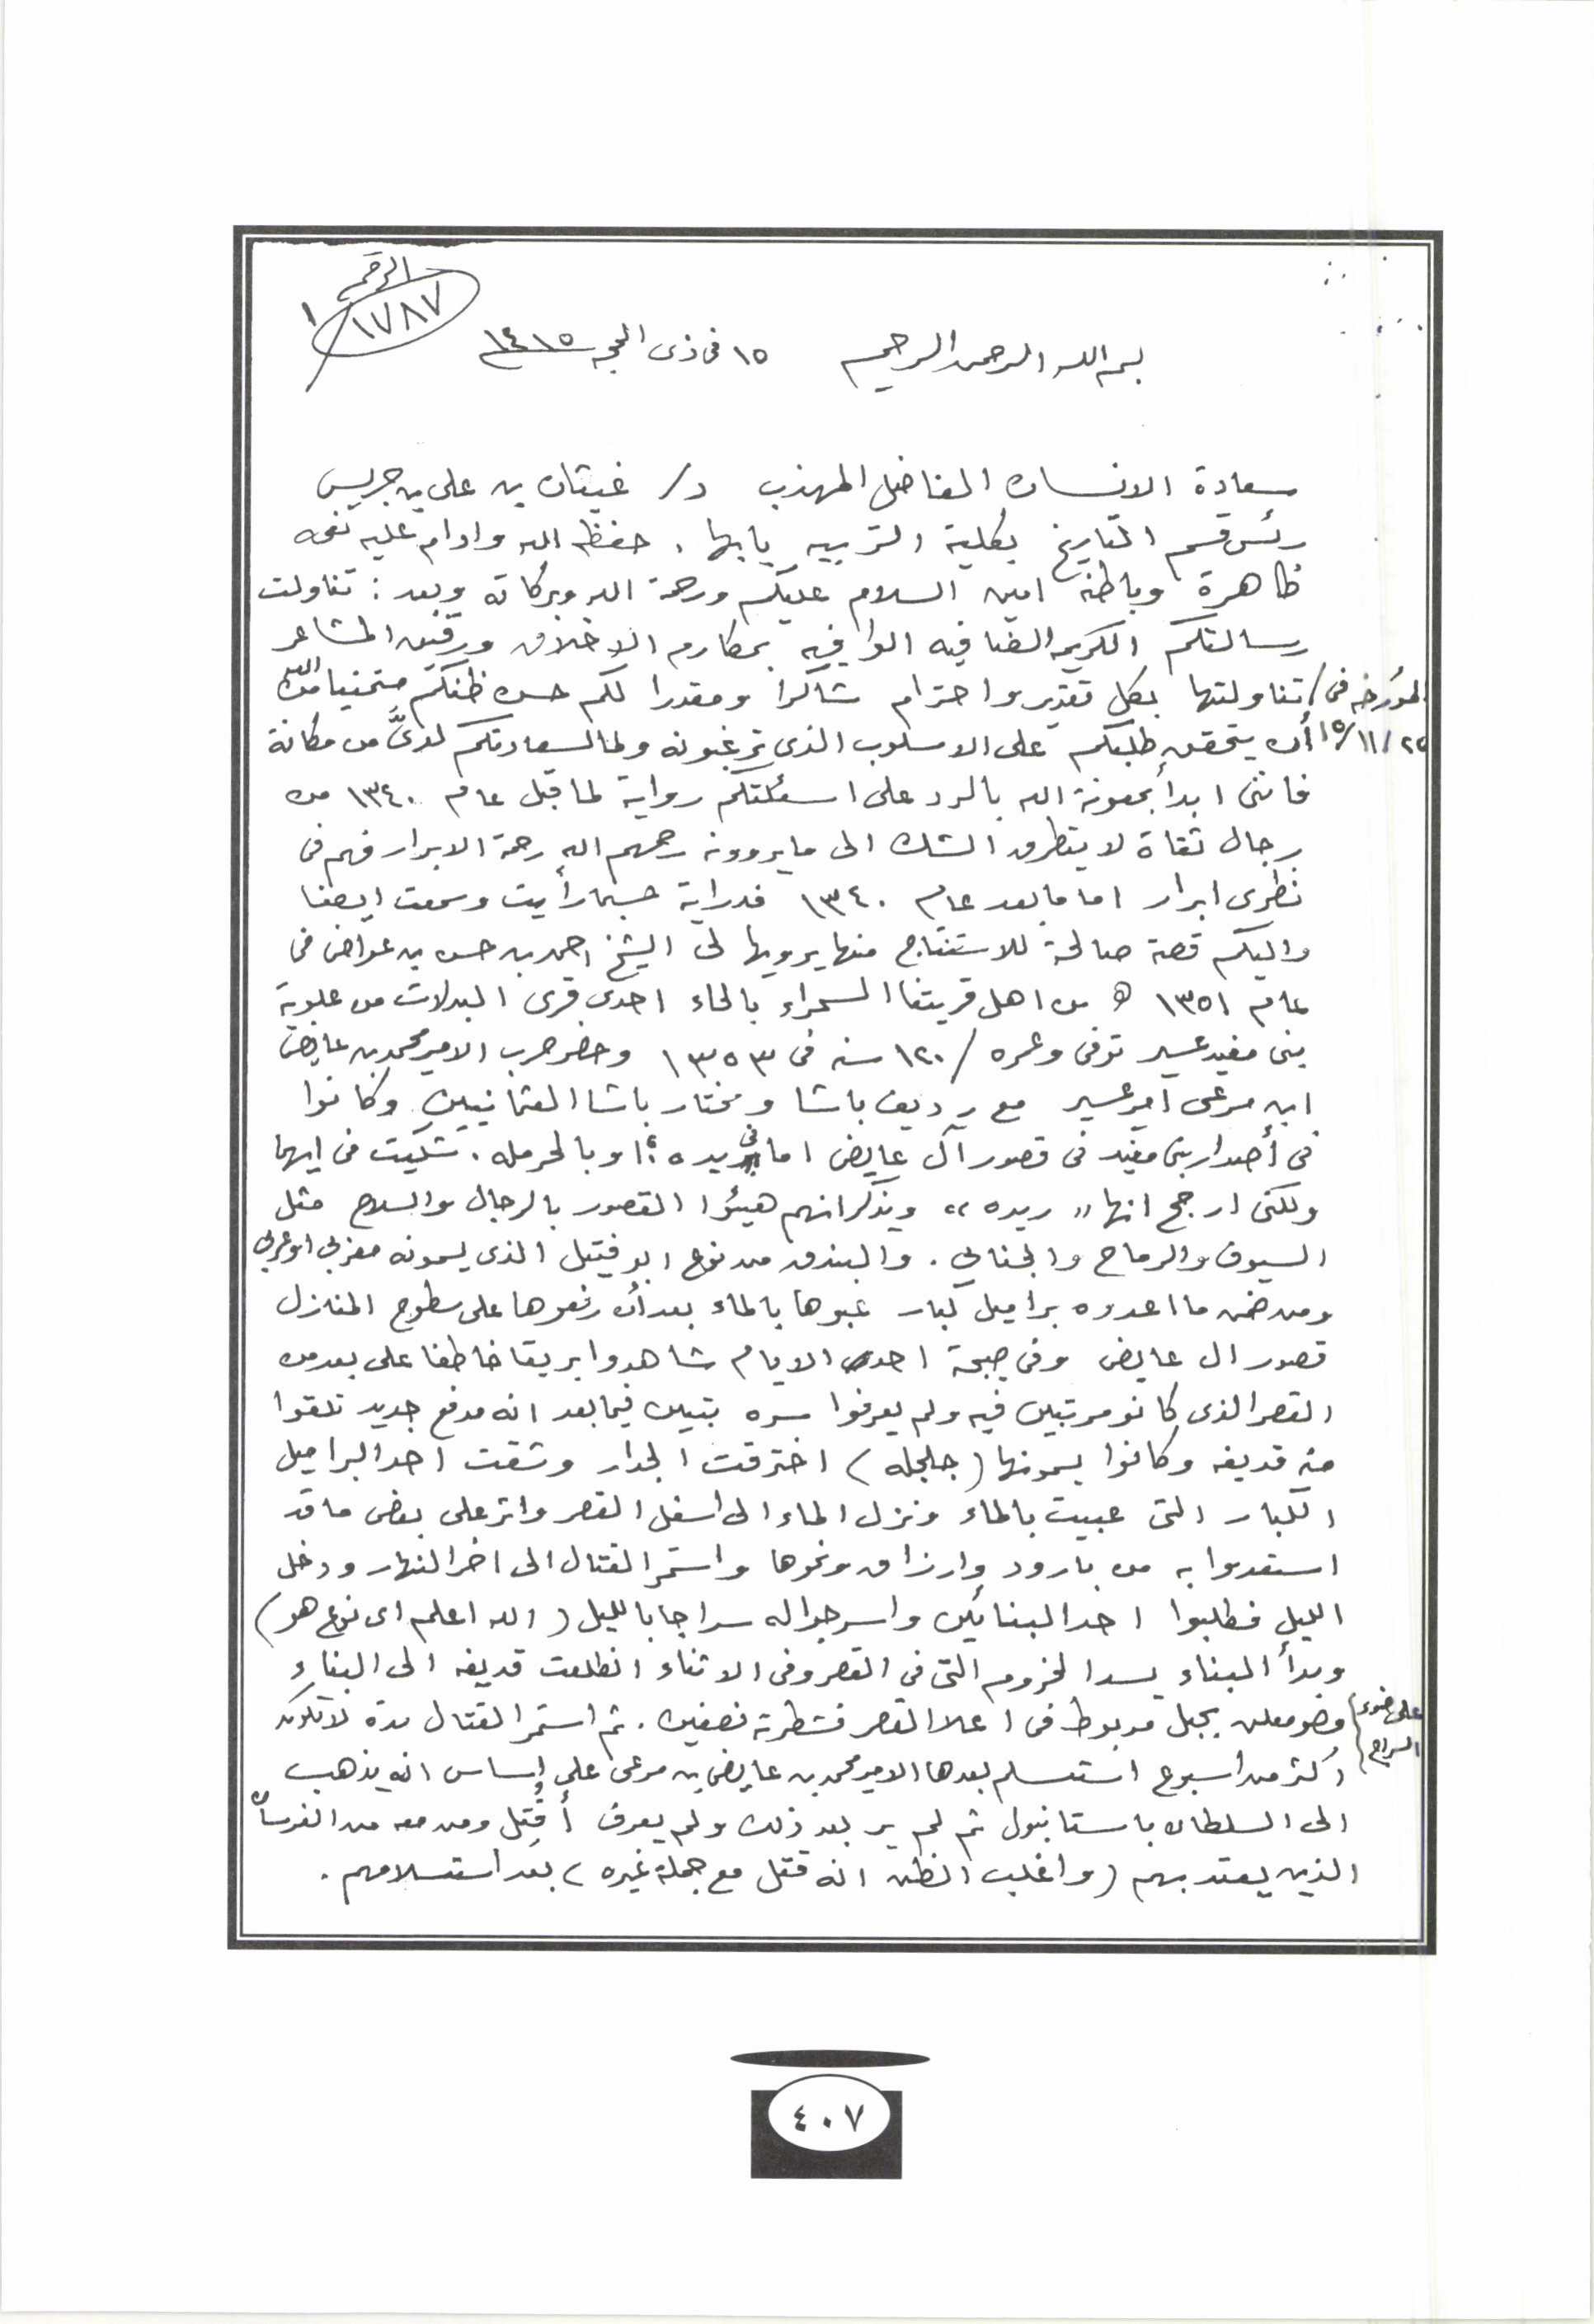 الرقم
١٧٨٧
١
بسم الله الرحمن الرحيم ١٥ فى ذى الحجه ١٤١٥
سعادة الانسان الفاضل المهذب د/ غيثان بن على بن جريس
رئس قسم التاريخ بكلية التربيه بابها. حفظه الله وادام عليه نعمه
ظاهرة وباطنه امين السلام عليكم ورحمة الله وبركاته وبعد: تناولت
رسالتكم الكريمه الضافيه الوافيه بمكارم الاخلاق ورقيق المشاعر
المؤرخه فى/ تناولتها بكل تقدير واحترام شاكرا ومقدرا لكم حسن ظنكم متمنيا من الله
٢٥/١١/١٥ أن يتحقق طلبكم على الاسلوب الذى ترغبونه ولما لسعادتكم لدىَّ من مكانة
فاننى ابدأ بمعونة الله بالرد على اسئلتكم رواية لما قبل عام ١٣٤٠ من
رجال ثقاة لا يتطرق الشك الى ما يروونه رحمهم الله رحمة الابرار فهم فى
نظرى ابرار اما ما بعد عام ١٣٤٠ فدراية حسبما رأيت وسمعت ايضا
واليكم قصة صالحة للاستنتاج منها يرويها لى الشيخ احمد بن حسن بن عواض فى
عام ١٣٥١ ه من اهل قريتنا السحراء بالحاء احدى قرى البدلات من علوية
بنى مغيد عسير توفى وعمره /١٢٠ سنه فى ١٣٥٣ وحضر حرب الامير محمد بن عايض
ابن مرعى امير عسير مع رديف باشا ومختار باشا العثمانيين وكانوا
فى أصدار بنى مغيد فى قصور آل عايض اما فى ريده او بالحرمله. شكيت فى ايهما
ولكنى ارجح انها "ريده" ويذكر انهم هيئوا القصور بالرجال والسلاح مثل
السيوف والرماح والجنابي. والبندق من نوع ابو فيتيل الذى يسمونه مغربي او عربي
ومن ضمن ما اعدوه براميل كبار عبوها بالماء بعد أن رفعوها على سطوح المنازل
قصور ال عايض وفى صبحة احدى الايام شاهدوا بريقا خاطفا على بعد من
القصر الذى كانو مرتبين فيه ولم يعرفوا سره بتبين فيما بعد انه مدفع جديد تلقوا
منه قديفه وكانوا يسمونها (جلجله) اخترقت الجدار وشقت احد البراميل
الكبار التى عبيت بالماء ونزل الماء الى اسفل القصر واثر على بعض ما قد
استعدوا به من بارود وارزاق ونحوها واستمر القتال الى اخر النهار ودخل
الليل فطلبوا احد البنائين واسرجوا له سراجا بالليل (الله اعلم اى نوع هو)
وبدأ البناء يسد الخروم التى فى القصر وفى الاثناء انطلقت قديفه الى البناء
على ضوء السراج
وهو معلق بحبل مربوط فى اعلا القصر فشطرته نصفين. ثم استمر القتال مدة لا تكون
اكثر من اسبوع استسلم بعدها الامير محمد بن عايض بن مرعى على إساس انه يذهب
الى السلطان باستانبول ثم لم ير بعد ذلك ولم يعرف أقُتِل ومن معه من الفرسان
الذين يعتد بهم (واغلب الظن انه قتل مع جملة غيره) بعد استسلامهم.
٤٠٧